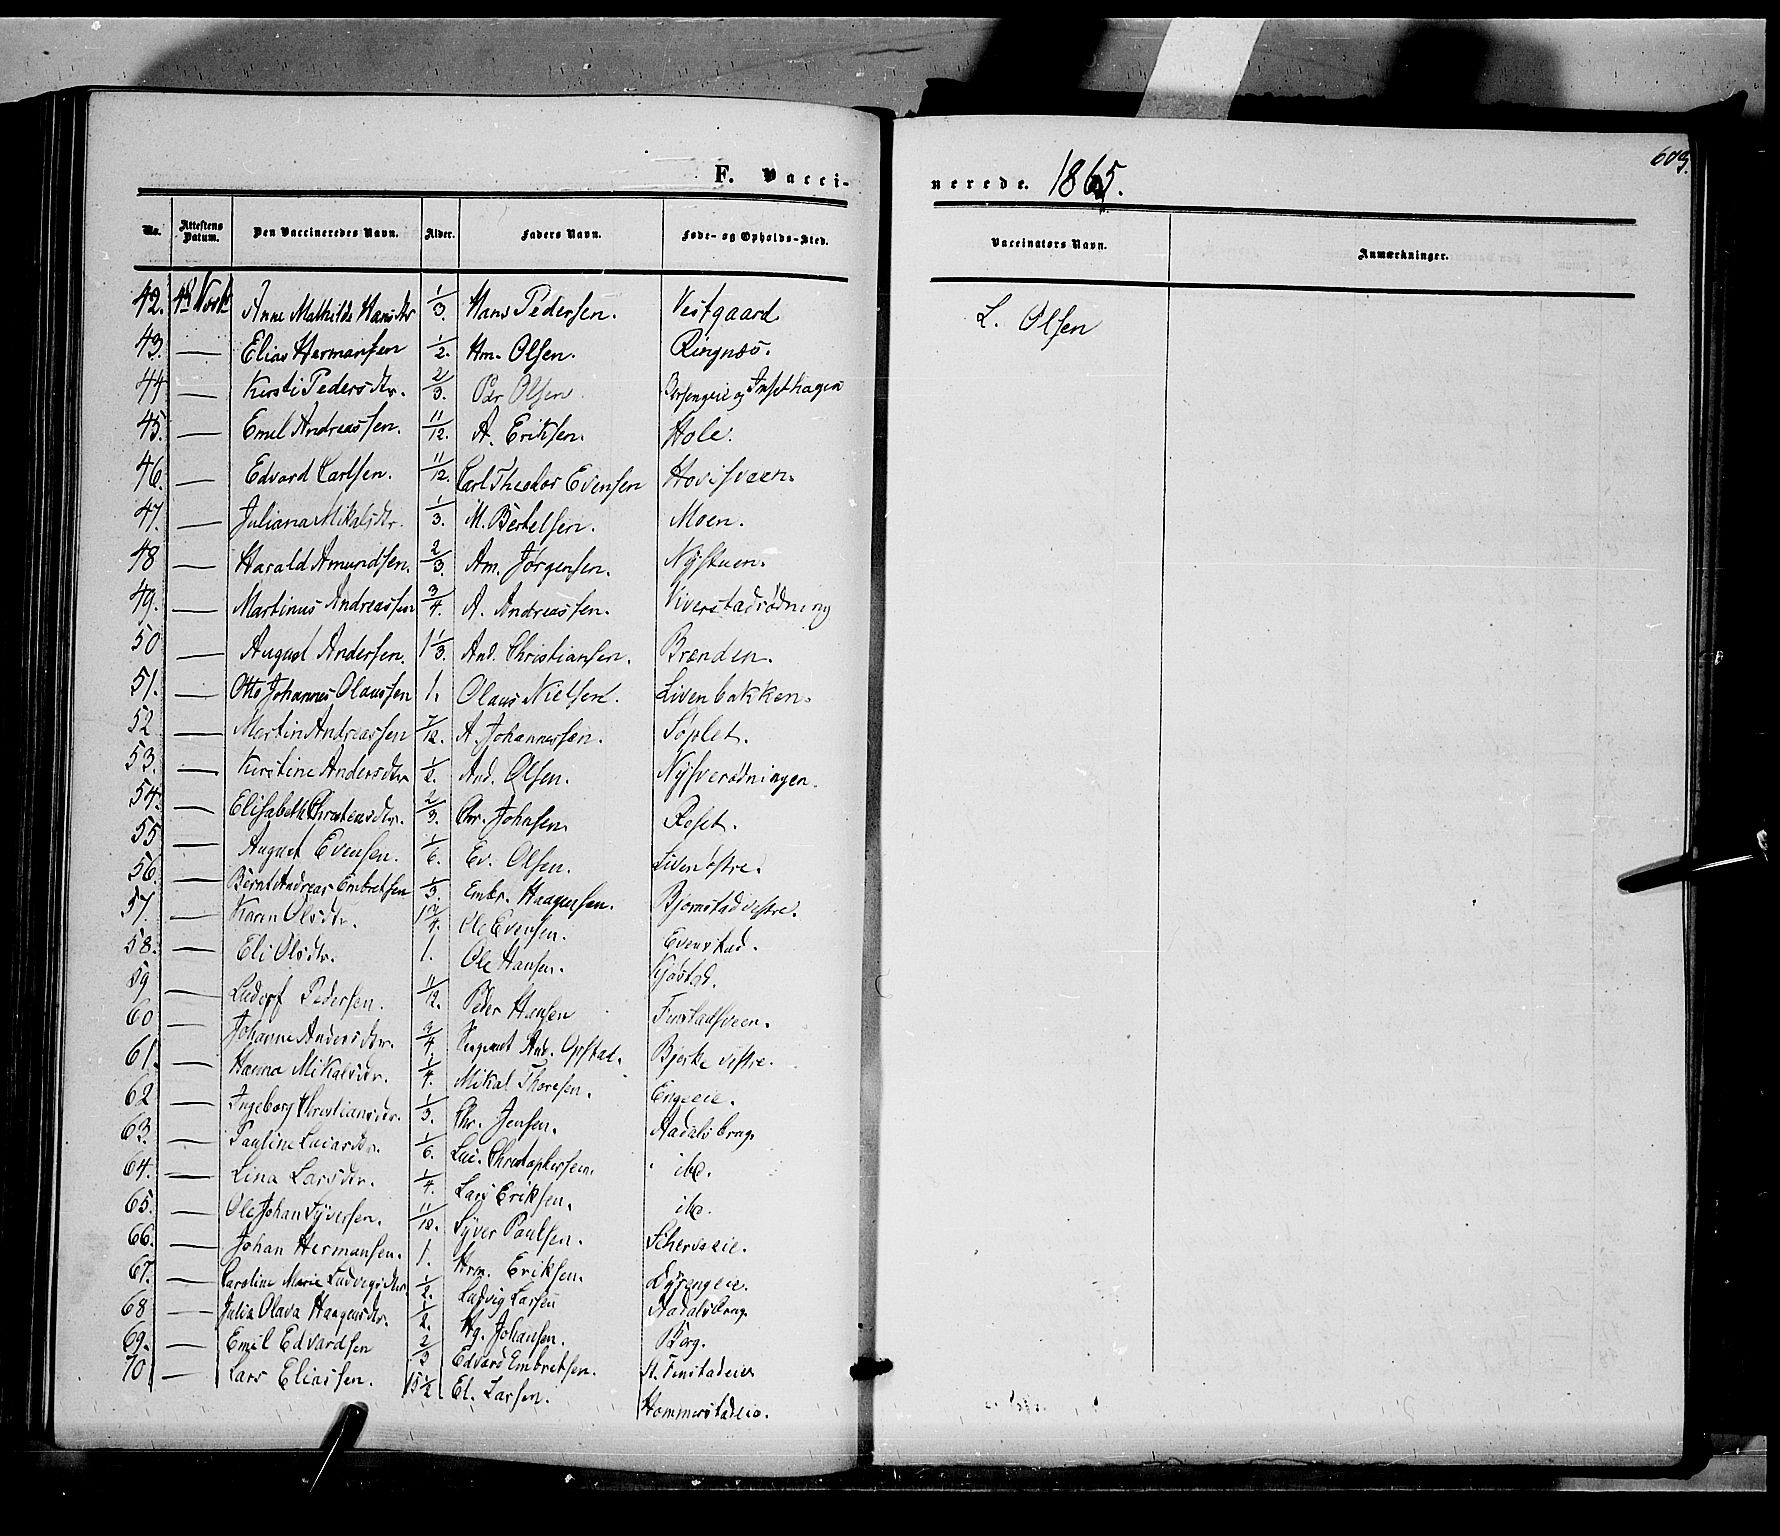 F. Vacci-
nerede. 1865.
609.
No. Attestens Datum. Den Vaccineredes Navn. Alder. Faders Navn. Føde- og Opholds-Sted. Vaccinators Navn. Anmærkninger.
42. Anne Mathilde Hansdtr 1/3. Hans Pedersen. Vestgaard. L. Olsen
43. — Elias Hermansen 1/2. Hm. Olsen. Ringnæs.
44 — Kersti Pedersdtr. 2/3. Pdr Olsen
45. — Emil Andreassen. 11/12. A. Eriksen. Hole.
46. — Edvard Carlsen. 11/12. Carl Theodor Evensen Hovisveen.
47. — Juliana Mikalsdtr. 1/3. M. Bertelsen. Moen.
48 — Harald Amundsen. 2/3. Am. Jørgensen. Nystuen.
49. — Martinus Andreassen 3/4. A. Andreassen. Viverstadrødning
50 — August Andersen. 1 1/3. And. Christiansen. Brænden.
51. — Otto Johannes Olaussen 1. Olaus Nielsen. Livenbakken.
52 — Martin Andreassen 7/12. A. Johannessen. Søplet.
53. — Kerstine Andersdtr 1/2. And. Olsen.
54. — Elisabeth Christensdtr. 2/3. Chr. Johnsen. Roset.
55 — August Evensen. 1/6. Ev. Olsen. Liven østre.
56 — Bernt Andreas Embretsen 1/3. Embr. Haagensen. Bjørnstad vestre.
57. — Karen Olsdtr. Ole Evensen. Evenstad.
58. — Eli Olsdtr. 1. Ole Hansen. Kjøstad.
59 — Ludvig Pedersen. 11/12. Peder Hansen Finstadsveen.
60 — Johanne Andersdtr. 3/4. Sergeant And. Opstad. Bjerke vestre.
61. — Hanna Mikalsdtr. 1/4. Mikal Thoresen. Engeeie.
62 — Ingeborg Christiansdtr. 1/3. Chr. Jensen. Aadalsbrug
63. — Pauline Lucasdtr. 1/6. Luc. Christophersen. ibd.
64. — Lina Larsdtr. 1/4. Lars Eriksen. ibd.
65. — Ole Johan Syversen. Syver Paulsen.
66. — Johan Hermansen. 1. Hrm. Eriksen. Dyrengeie.
67. — Caroline Marie Ludvigsdtr. 1/2. Ludvig Larsen Aadalsbrug.
68 — Julia Olava Haagensdtr. 1/2. Hg. Johansen. Borg.
69. — Emil Edvardsen 2/3 Edvard Embretsen. N. Finstadeie
70 — Lars Eliassen. 15 1/2 El. Larsen. Hommerstadeie.